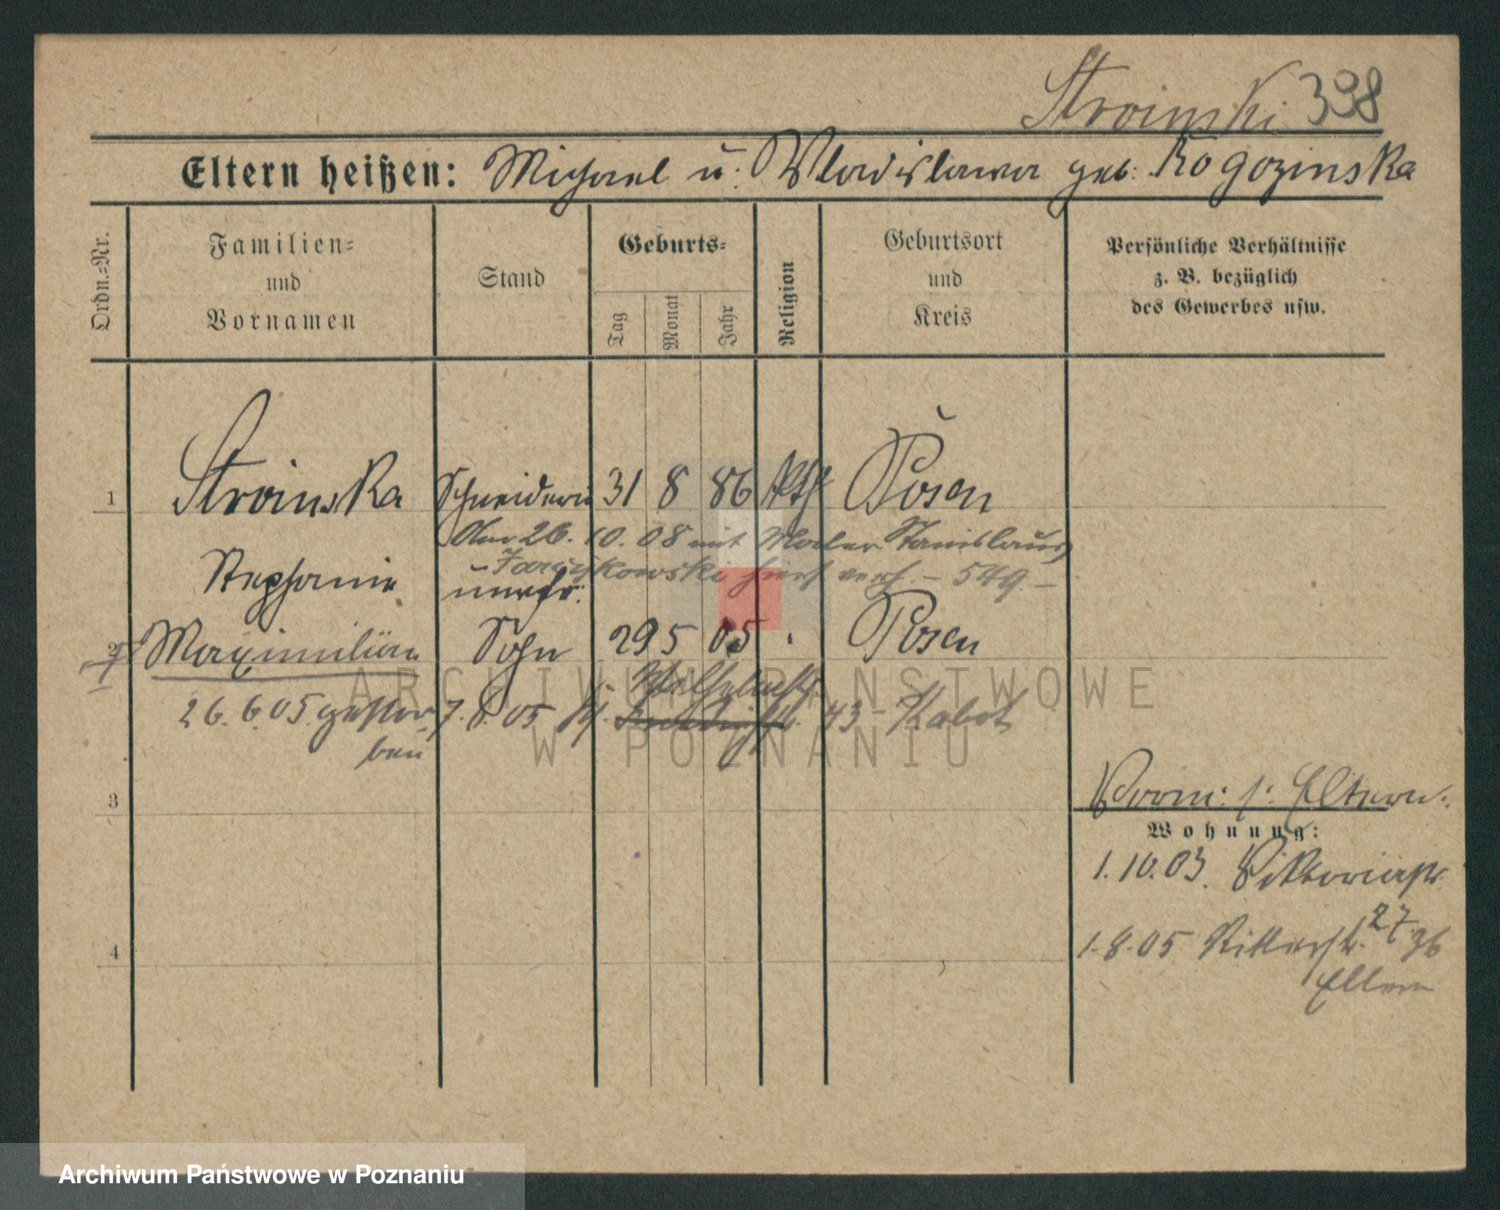 Stroinski 398
Eltern heißen: Michael u. Wladislawa geb. Rogozinska
Ordn.-Nr.
Familien-
und
Vornamen
Stand
Geburts-
Tag
Monat
Jahr
Religion
Geburtsort
und
Kreis
Persönliche Verhältnisse
z. B. bezüglich
des Gewerbes usw.
1 Stroinska Schneiderin 31 8 86 kth Posen
Am 26.10.08 mit Maler Stanislaus
Jarczykowski hier verh. - 549. -
Stephanie unverh.
2 Maximilian Sohn 29 5 05 Posen
26.6.05 gestor
ben
7.6.05
43
3
Vorm. s. Eltern.
Wohnung:
1.10.03. Viktoriastr.
27
1.8.05 Ritterstr. 36
Eltern
4
ARCHIWUM PAŃSTWOWE
W POZNANIU
Archiwum Państwowe w Poznaniu